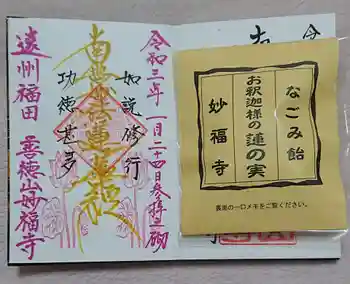 令和三年 一月二十四日参拝之砌
如説修行
南無妙法蓮華経
功徳甚多
遠州福田 善徳山妙福寺
なごみ飴
お釈迦様の蓮の実
妙福寺
裏面の一口メモをご覧ください。